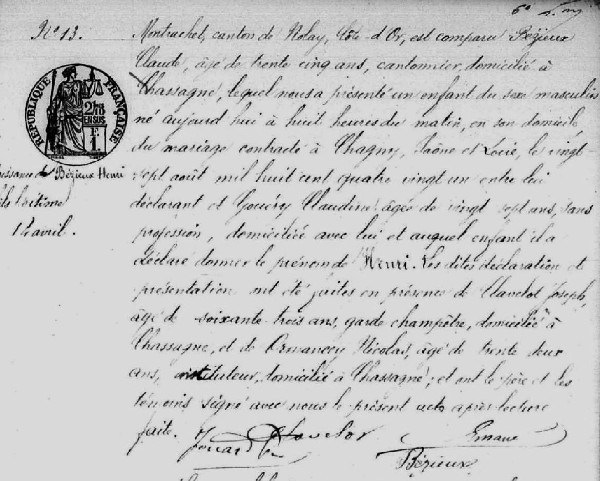 N° 13.
Montrachet, canton de Nolay, Côte-d'Or, est comparu Bézieux
Claude, âgé de trente cinq ans, cantonnier, domicilié à
Chassagne, lequel nous a présenté un enfant du sexe masculin
né aujourd'hui à huit heures du matin, en son domicile
du mariage contracté à Chagny, Saône et Loire, le vingt-
sept août mil huit cent quatre vingt un entre lui
déclarant et Claudine âgée de vingt sept ans, sans
profession, domiciliée avec lui et auquel enfant il a
déclaré donner le prénom de Henri. Les dites déclaration et
présentation ont été faites en présence de Clavelot Joseph,
âgé de soixante trois ans, garde champêtre, domicilié à
Chassagne, et de Ormancey Nicolas, âgé de trente deux
ans, instituteur, domicilié à Chassagne; et ont le père et les
témoins signé avec nous le présent acte après lecture
faite. Clavelot
Bézieux
RÉPUBLIQUE FRANÇAISE
issance de Bézieux Henri
fils légitime
12 avril.